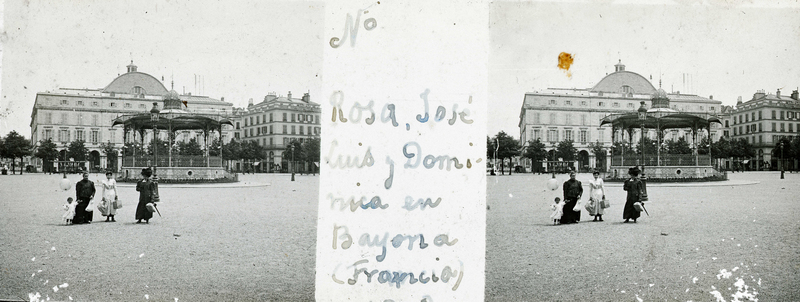 Nº
Rosa, José
Luis y Domi-
nica en
Bayona
(Francia)